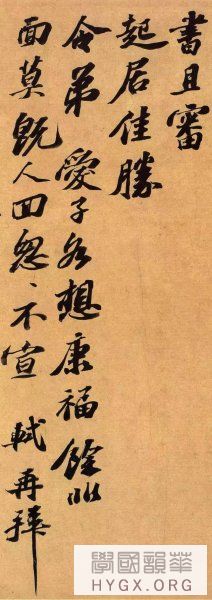 書且審
起居佳勝
令弟愛子各想康福餘非
面莫既人回怱怱不宣 軾再拜
學國韻華
HYGX.ORG